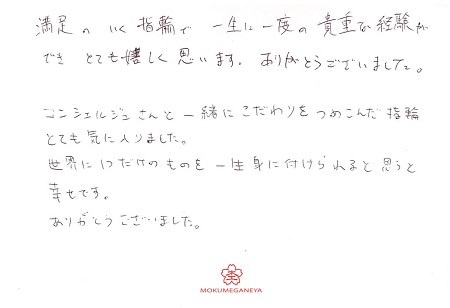 満足のいく指輪で一生に一度の貴重な経験が
でき とても嬉しく思います。ありがとうございました。
コンシェルジュさんと一緒にこだわりをつめこんだ指輪
とても気に入りました。
世界に1つだけのものを一生身に付けられると思うと
幸せです。
ありがとうございました。
MOKUMEGANEYA